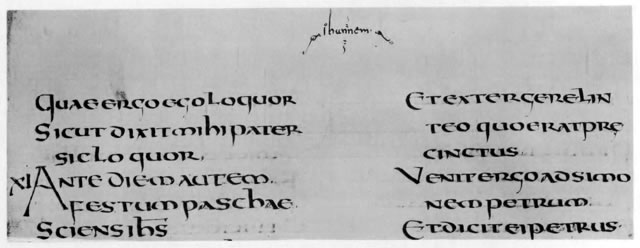 QUAE ERGO EGO LOQUOR
SICUT DIXIT MIHI PATER
SIC LOQUOR.
XI ANTE DIEM AUTEM
FESTUM PASCHAE
SCIENS IH̅S̅
ET EXTERGERE LIN
TEO QUO ERAT PRĘ
CINCTUS
VENIT ERGO AD SIMO
NEM PETRUM.
ET DICIT EI PETRUS